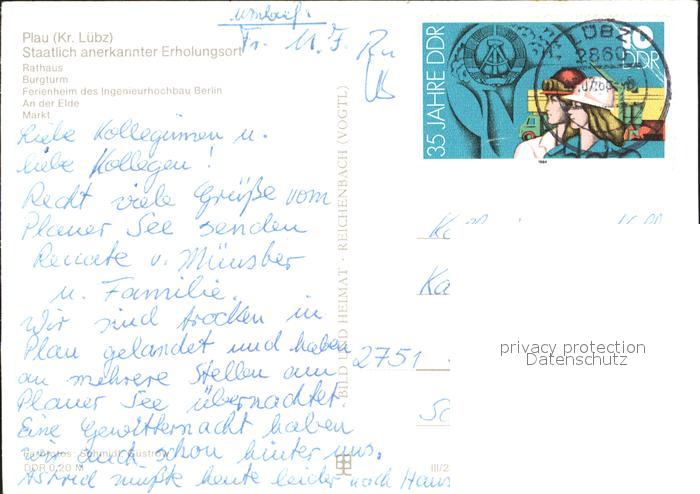 Plau (Kr. Lübz)
Staatlich anerkannter Erholungsort
Rathaus
Burgturm
Ferienheim des Ingenieurhochbau Berlin
An der Elde
Markt
Fr. 11.7.
Liebe Kolleginnen u.
liebe Kollegen!
Recht viele Grüße vom
Plauer See senden
Renate v. Münsber
u. Familie.
Wir sind trocken in
Plau gelandet und haben
an mehrere Stellen am
Plauer See übernachtet.
Eine Gewitternacht haben
wir auch schon hinter uns.
Astrid mußte heute leider nach Haus
Farbfotos: Schmidt, Güstrow
DDR 0,20 M
BILD UND HEIMAT · REICHENBACH (VOGTL)
III/2
35 JAHRE DDR
10
DDR
1984
LÜBZ
2860
Ka
2751
Sc
privacy protection
Datenschutz